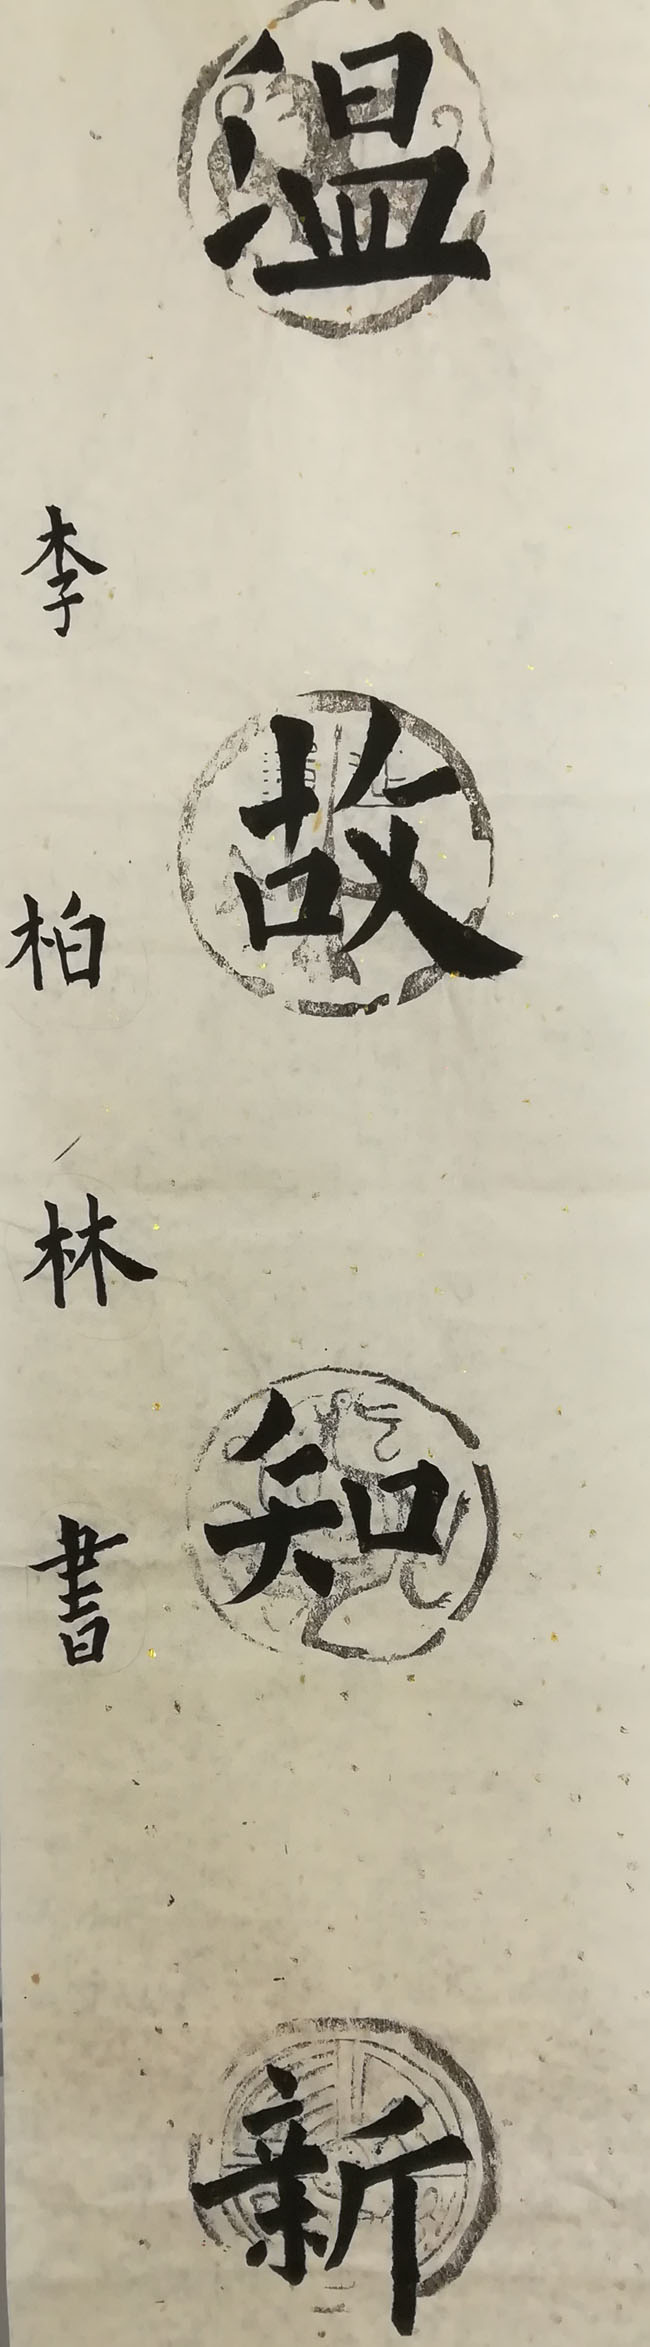 温故知新
李柏林書